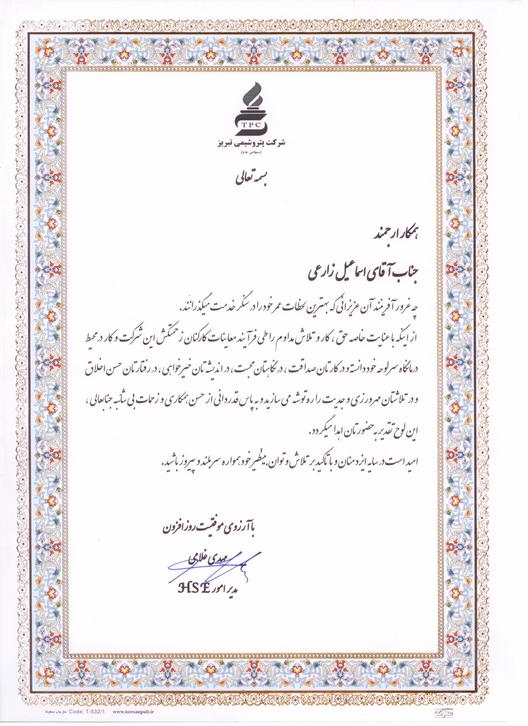 TPC
شرکت پتروشیمی تبریز
(سهامی عام)
بسمه تعالی
همکار ارجمند
جناب آقای اسماعیل زارعی
چه غرور آفرینند آن عزیزانی که بهترین لحظات عمر خود را در سنگر خدمت میگذرانند.
از اینکه با عنایت خاصه حق، کار و تلاش مداوم را طی فرآیند معاینات کارکنان زحمتکش این شرکت و کار در محیط
درمانگاه سرلوحه خود دانسته و در کارتان صداقت، در نگاهتان محبت، در اندیشتان خیرخواهی، در رفتارتان حسن اخلاق
و در تلاشتان مهرورزی و جدیت را ره توشه می سازید و به پاس قدردانی از حسن همکاری و زحمات بی شائبه جنابعالی،
این لوح تقدیر به حضورتان اهدا میگردد.
امید است در سایه ایزد منان و با تاکید بر تلاش و توان بینظیر خود همواره سربلند و پیروز باشید.
با آرزوی موفقیت روز افزون
مهدی غلامی
مدیر امور HSE
Code: T-532/1 www.tawsanpub.ir